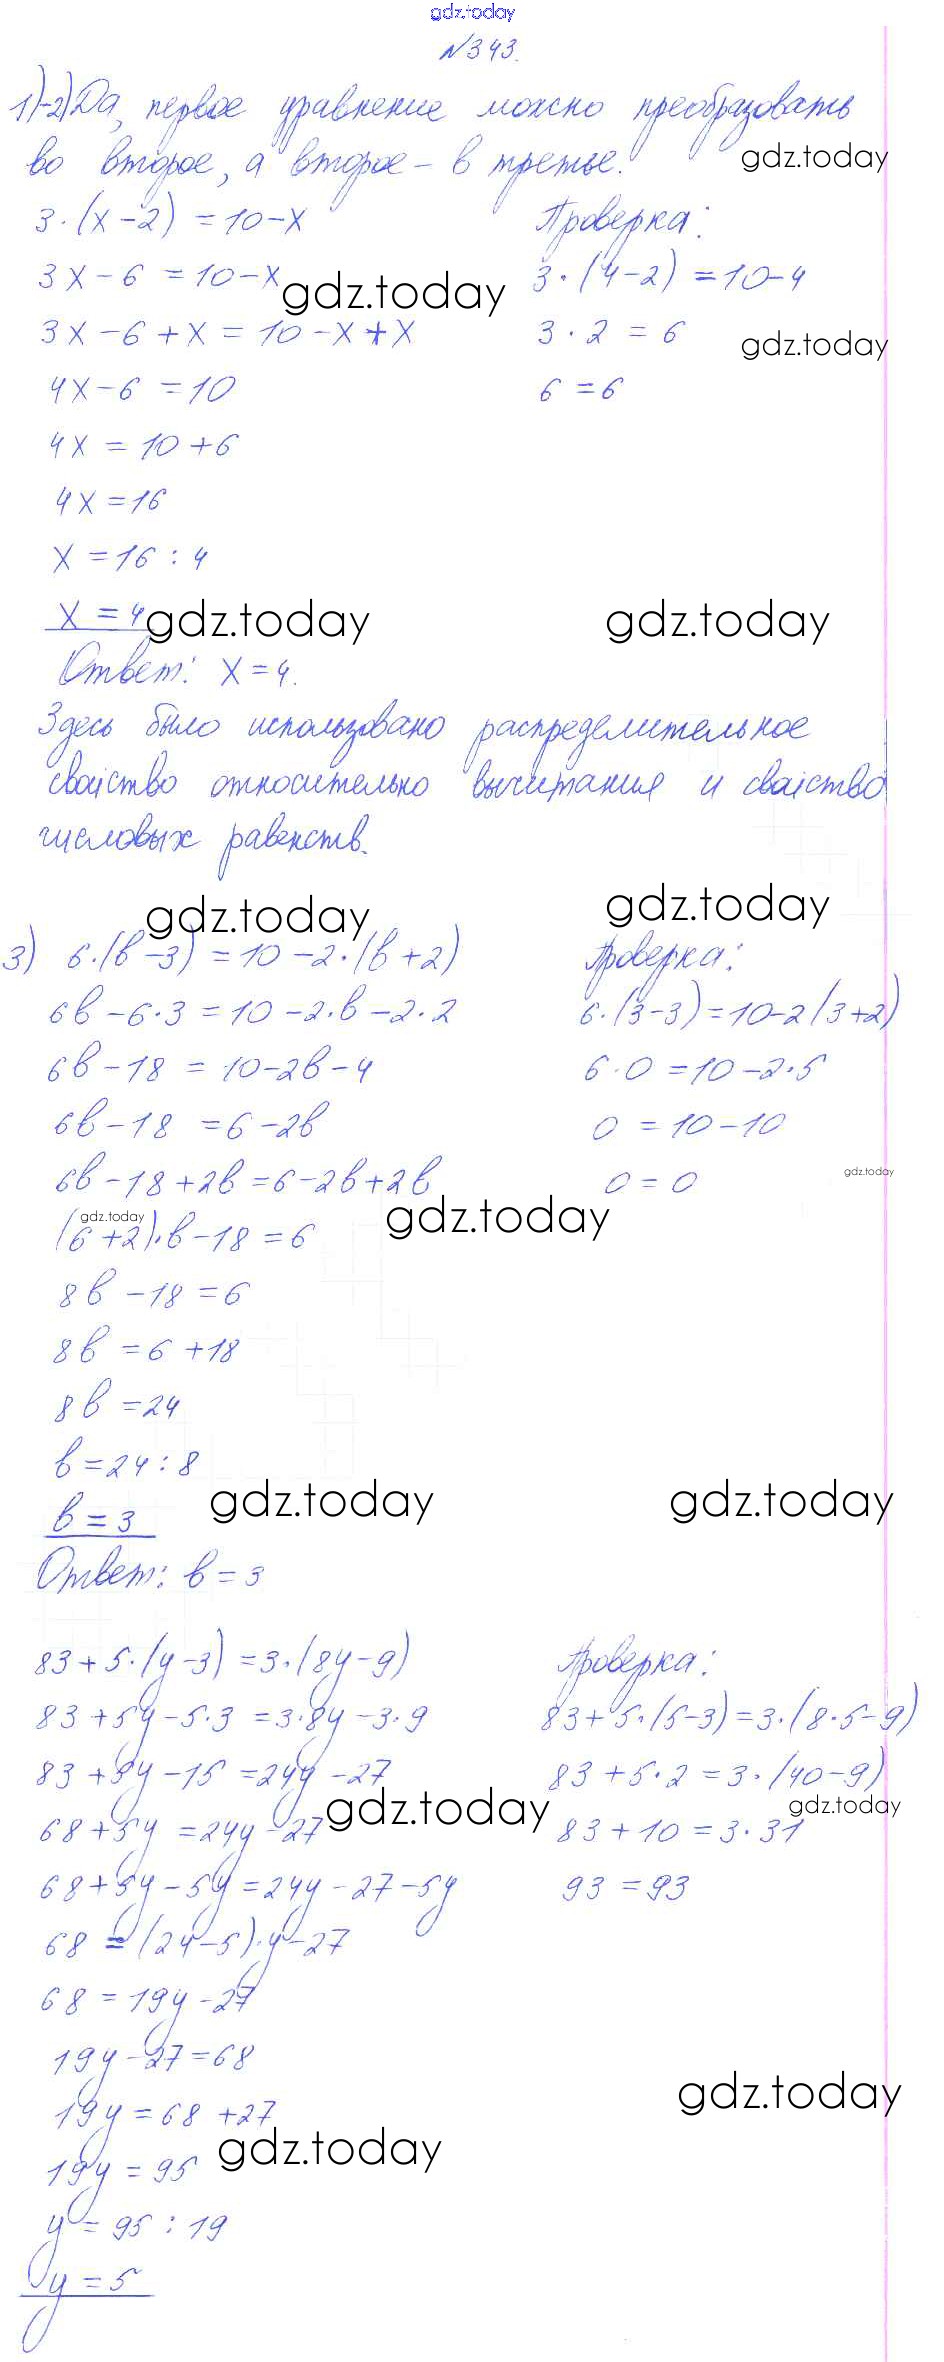 gdz.today
№343.
1)-2) Да, первое уравнение можно преобразовать
во второе, а второе - в третье.
gdz.today
3·(x-2) = 10-x
3x-6 = 10-x
gdz.today
3x-6+x = 10-x+x
4x-6 = 10
4x = 10+6
4x = 16
x = 16 : 4
x = 4
gdz.today
gdz.today
Ответ: x = 4.
Проверка:
3·(4-2) = 10-4
3·2 = 6
gdz.today
6 = 6
Здесь было использовано распределительное
свойство относительно вычитания и свойство
числовых равенств.
gdz.today
gdz.today
3) 6·(b-3) = 10-2·(b+2)
6b-6·3 = 10-2·b-2·2
6b-18 = 10-2b-4
6b-18 = 6-2b
6b-18+2b = 6-2b+2b
gdz.today
gdz.today
(6+2)·b-18 = 6
8b-18 = 6
8b = 6+18
8b = 24
b = 24 : 8
b = 3
gdz.today
gdz.today
Ответ: b = 3
Проверка:
6·(3-3) = 10-2(3+2)
6·0 = 10-2·5
0 = 10-10
0 = 0
gdz.today
83+5·(y-3) = 3·(8y-9)
83+5y-5·3 = 3·8y-3·9
83+5y-15 = 24y-27
68+5y = 24y-27
gdz.today
68+5y-5y = 24y-27-5y
68 = (24-5)·y-27
68 = 19y-27
19y-27 = 68
19y = 68+27
19y = 95
gdz.today
y = 95 : 19
y = 5
Проверка:
83+5·(5-3) = 3·(8·5-9)
83+5·2 = 3·(40-9)
gdz.today
83+10 = 3·31
93 = 93
gdz.today